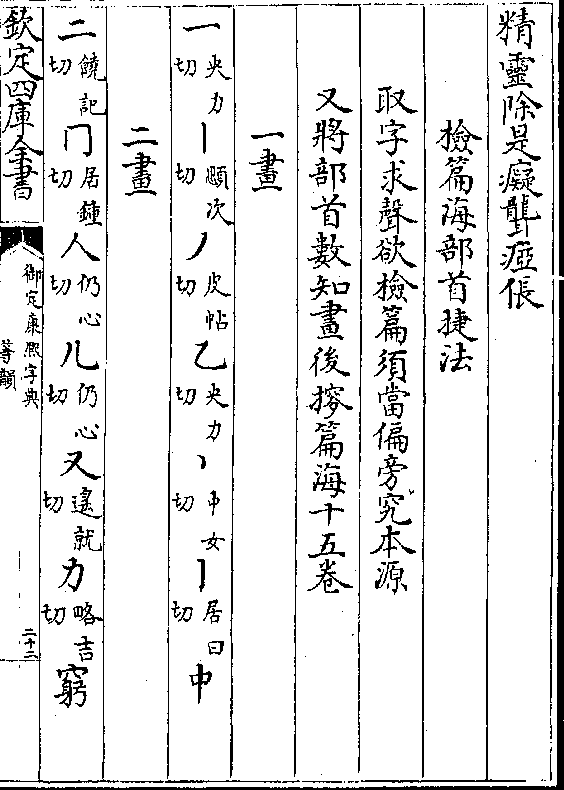 精靈除是癡聾瘂倀
檢篇海部首捷法
取字求聲欲檢篇須當偏旁究本源
又將部首數知畫後搜篇海十五卷
一畫
一央力切丨顋次切丿皮帖切乙央力切丶中女切亅居曰切中
二畫
二饒記切冂居鍾切人仍心切儿仍心切又遙就切力略吉切窮
欽定四庫全書
御定康熙字典
等韻
二十二